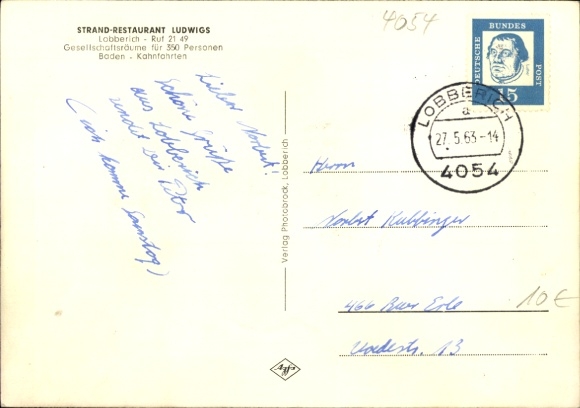 4054
STRAND-RESTAURANT LUDWIGS
Lobberich - Ruf 21 49
Gesellschaftsräume für 350 Personen
Baden - Kahnfahrten
DEUTSCHE BUNDES POST
15
LOBBERICH
a
27.5.63-14
4054
Lieber Norbert!
Schöne Grüße
aus Lobberich
sendet Dir
(ich komme Samstag)
Verlag Photobrock, Lobberich
Herrn
Norbert Kubbinger
466 Buer Erle
13
10 €